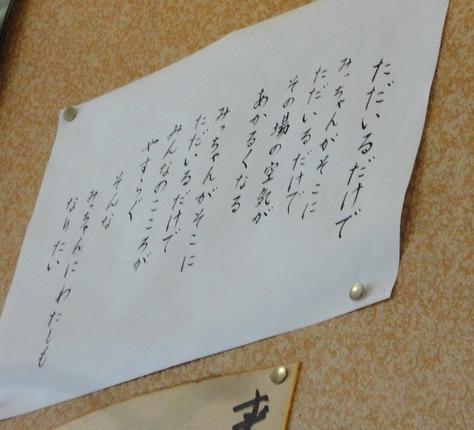 ただいるだけで
みっちゃんがそこに
ただいるだけで
その場の空気が
あかるくなる
みっちゃんがそこに
ただいるだけで
みんなのこころが
やすらぐ
そんな
みっちゃんにわたしも
なりたい